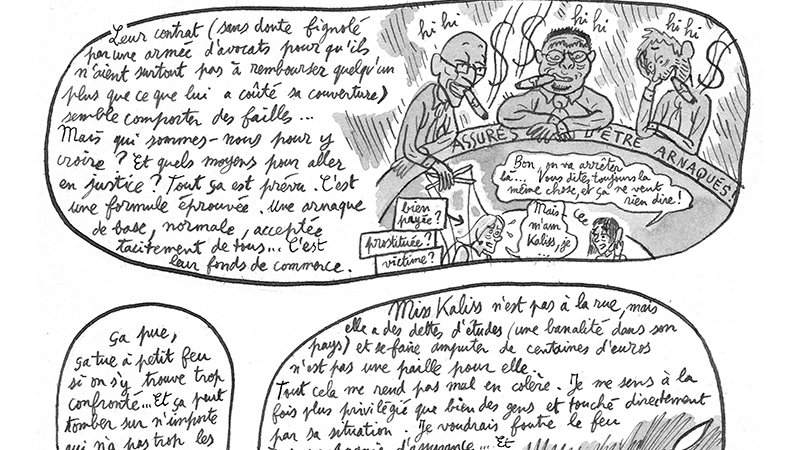 Leur contrat (sans doute fignolé
par une armée d'avocats pour qu'ils
n'aient surtout pas à rembourser quelqu'un
plus que ce que lui a coûté sa couverture)
semble comporter des failles...
Mais qui sommes-nous pour y
croire ? Et quels moyens pour aller
en justice ? Tout ça est prévu. C'est
une formule éprouvée. Une arnaque
de base, normale, acceptée
tacitement de tous... C'est
leur fonds de commerce.
hi hi
hi hi
hi hi
$
$
$
ASSURÉS D'ÊTRE ARNAQUÉS!
Bon, on va arrêter
là... Vous dites toujours la
même chose, et ça ne veut
rien dire!
bien
payée?
prostituée?
victime?
Mais
m'am
Kaliss, je
...
Ça pue,
ça tue à petit feu
si on s'y trouve trop
confronté... Et ça peut
tomber sur n'importe
qui n'a pas trop les
Miss Kaliss n'est pas à la rue, mais
elle a des dettes d'études (une banalité dans son
pays) et se faire amputer de centaines d'euros
n'est pas une paille pour elle.
Tout cela me rend pas mal en colère. Je me sens à la
fois plus privilégié que bien des gens et touché directement
par sa situation. Je voudrais foutre le feu
d'assurance... Et